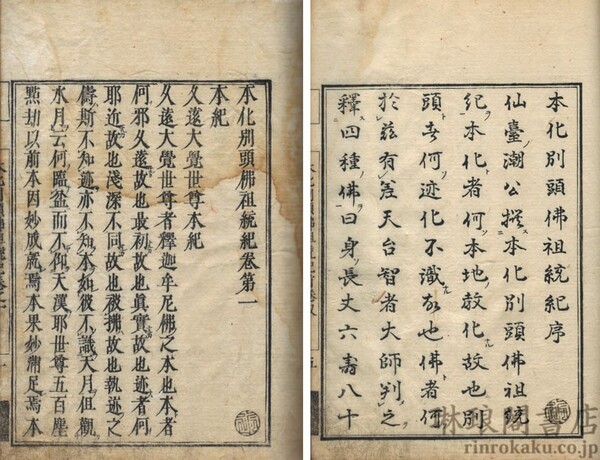 本化別頭佛祖統紀序
仙臺潮公撰本化別頭佛祖統
紀本化者何本地教化故也別
頭者何迹化不識故也佛者何
於茲有差天台智者大師判之
釋四種佛曰身長丈六壽八十
本化別頭佛祖統紀卷第一
本紀
久遠大覺世尊本紀
久遠大覺世尊者釋迦牟尼佛之本也本者
何邪久遠故也最初故也眞實故也迹者何
耶近故也淺深不同故也被攝故也執迹之
儔斯不知迹亦不知本如彼不識天月但觀
水月云何臨盆而不仰天漢耶世尊五百塵
點劫以前本因妙成就焉本果妙滿足焉本
琳琅閣書店
rinrokaku.co.jp